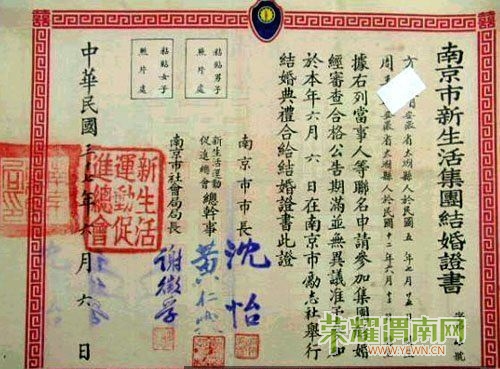 南京市新生活集團結婚證書
字第 號
方 安徽省太湖縣人於民國五年七月十五
周 安徽省太湖縣人於民國十二年六月十
據右列當事人等聯名申請參加集團結婚
經審查合格公告期滿並無異議准予參加
於本年六月六日在南京市勵志社舉行
結婚典禮合給結婚證書此證
南京市市長 沈怡
新生活運動促進總會 總幹事 黃仁霖
南京市社會局局長 謝徵孚
粘貼男子照片處
粘貼女子照片處
中華民國三十七年六月六日
新生活運動促進總會
榮耀渭南網
WWW.YEWN.CN